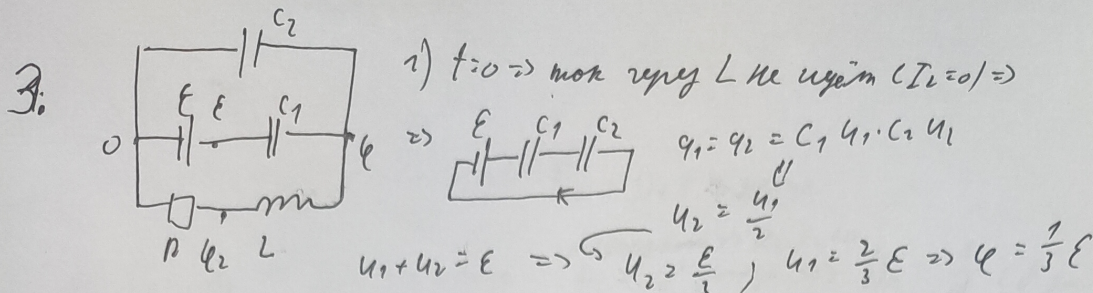 3.
C₂
ε ε C₁
0 φ
R φ₂ L
1) t=0 => ток через L не идёт (I_L=0) =>
=> ε C₁ C₂ q₁ = q₂ = C₁ u₁ · C₂ u₂
u₂ = u₁/2
u₁ + u₂ = ε => u₂ = ε/3 ; u₁ = 2/3 ε => φ = 1/3 ε